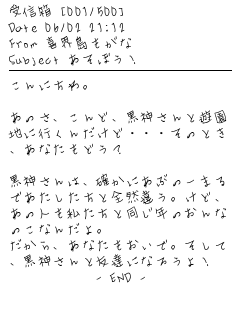 受信箱 [001/500]
Date 06/02 21:12
From 喜界島もがな
Subject あそぼう!
こんにちわ。
あのさ、こんど、黒神さんと遊園
地に行くんだけど・・・そのとき
、あなたもどう?
黒神さんは、確かにあぶのーまる
であたしたちと全然違う。けど、
あの人も私たちと同じ年のおんな
のこなんだよ。
だから、あなたもおいで。そして
、黒神さんと友達になろうよ!
- END -